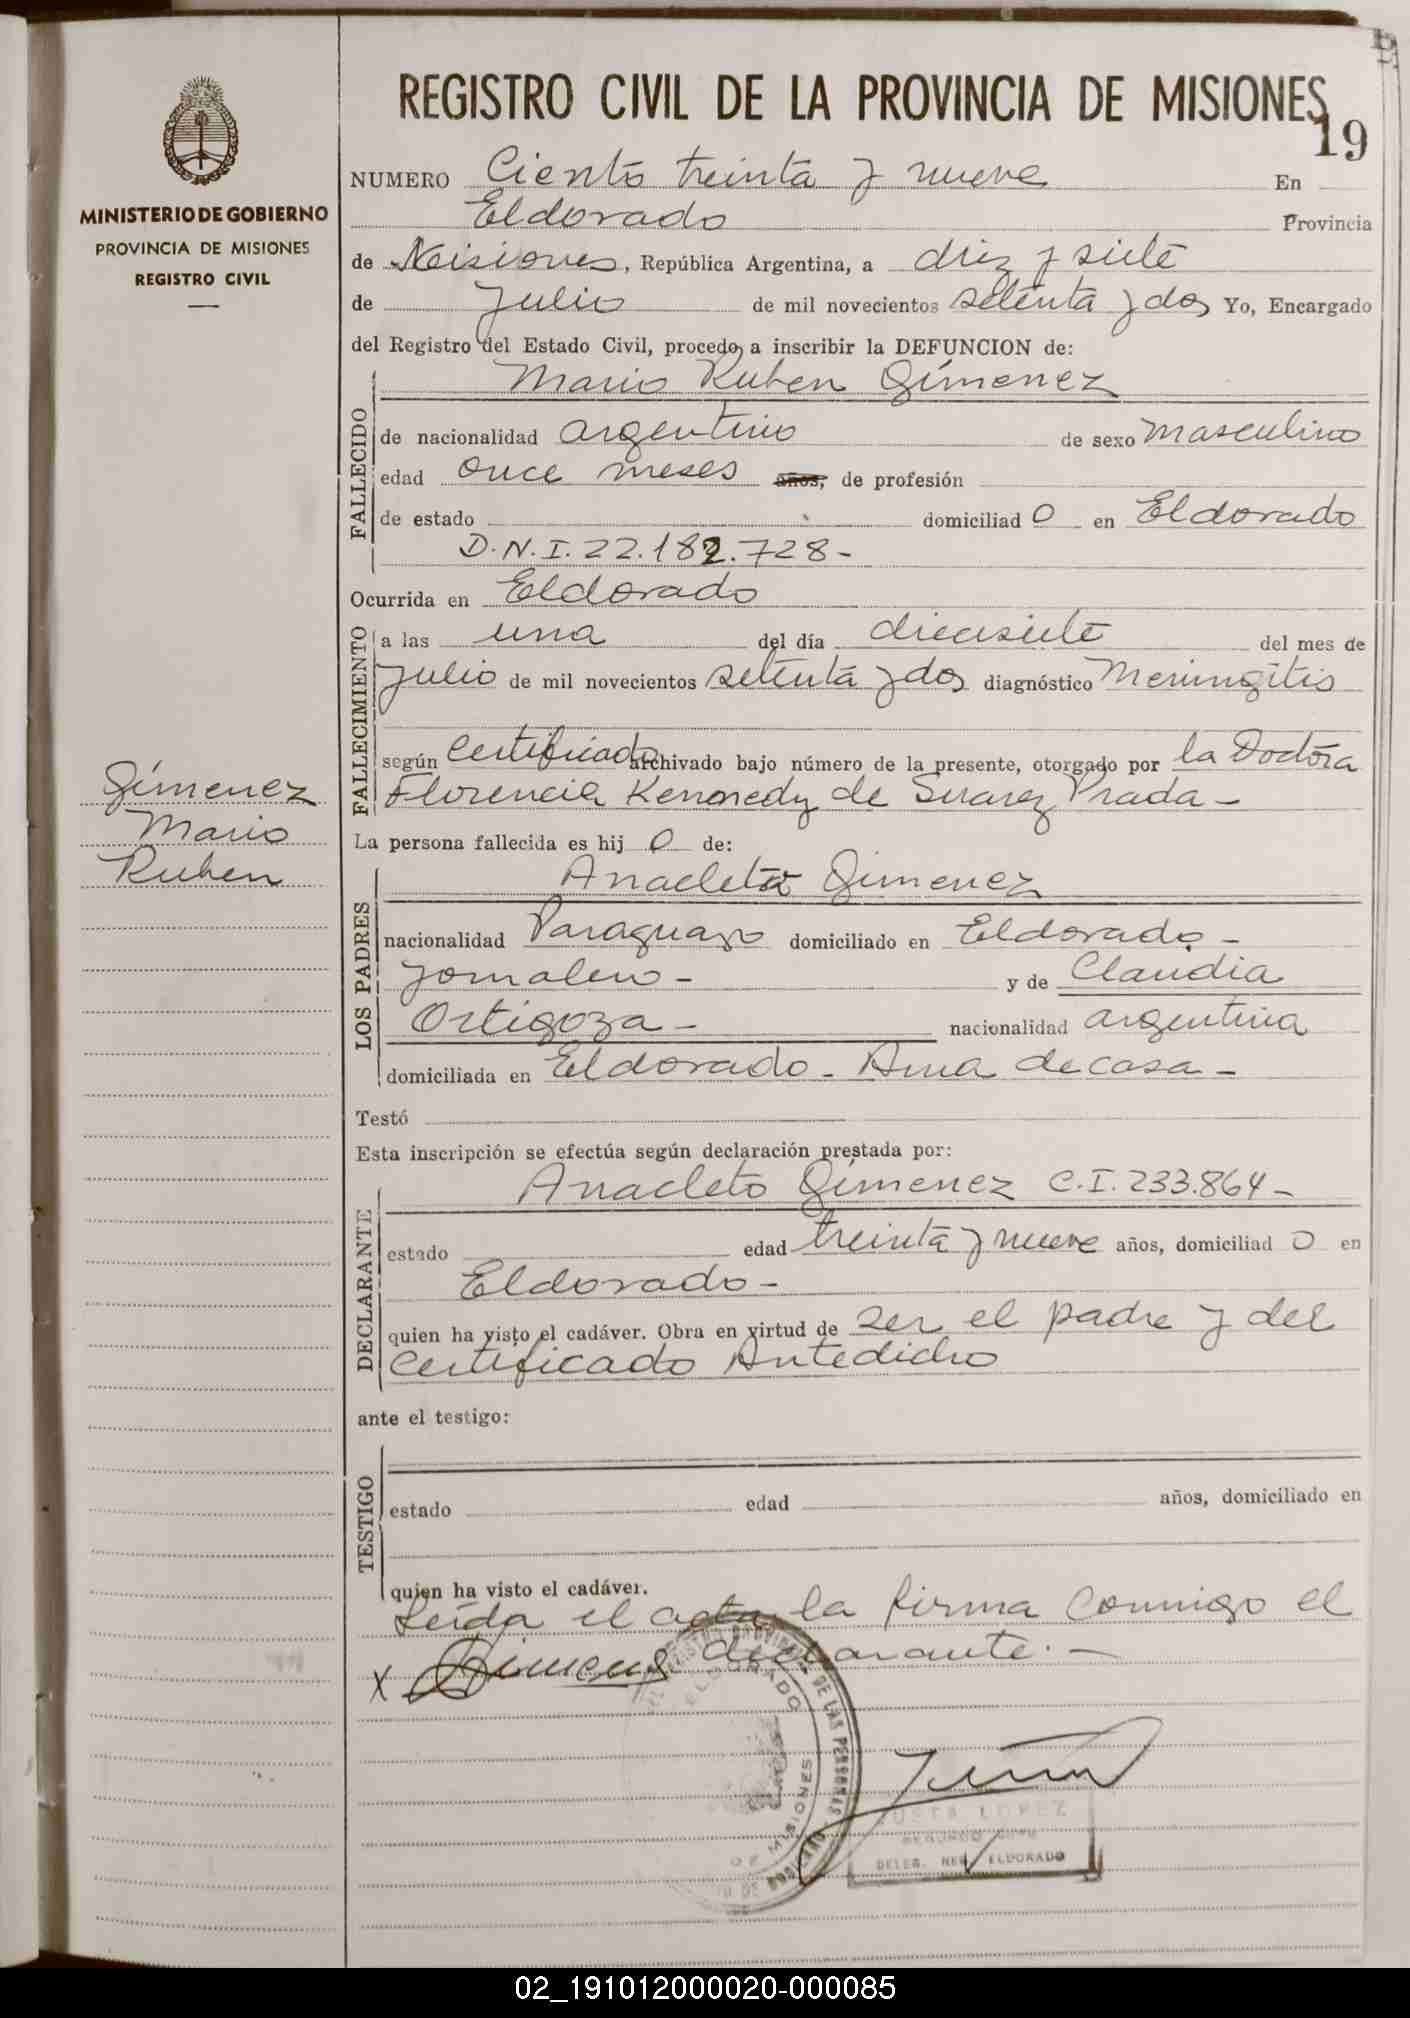 REGISTRO CIVIL DE LA PROVINCIA DE MISIONES
19
MINISTERIO DE GOBIERNO
PROVINCIA DE MISIONES
REGISTRO CIVIL
NUMERO Ciento treinta y nueve En
Eldorado Provincia
de Misiones, República Argentina, a diez y siete
de Julio de mil novecientos setenta y dos Yo, Encargado
del Registro del Estado Civil, procedo a inscribir la DEFUNCION de:
Mario Ruben Gimenez
FALLECIDO
de nacionalidad argentino de sexo masculino
edad once meses años, de profesión
de estado domiciliad o en Eldorado
D.N.I. 22.182.728-
Ocurrida en Eldorado
FALLECIMIENTO
a las una del día diecisiete del mes de
Julio de mil novecientos setenta y dos diagnóstico Meningitis
según Certificado archivado bajo número de la presente, otorgado por la Doctora
Florencia Kennedy de Suarez Prada-
Gimenez
Mario
Ruben
La persona fallecida es hij o de:
LOS PADRES
Anacleto Gimenez
nacionalidad Paraguayo domiciliado en Eldorado-
Jornalero- y de Claudia
Ortigoza- nacionalidad argentina
domiciliada en Eldorado- Ama de casa-
Testó
Esta inscripción se efectúa según declaración prestada por:
DECLARANTE
Anacleto Gimenez C.I. 233.864-
estado edad treinta y nueve años, domiciliad o en
Eldorado-
quien ha visto el cadáver. Obra en virtud de ser el padre y del
Certificado Antedicho
ante el testigo:
TESTIGO
estado edad años, domiciliado en
quien ha visto el cadáver.
Leída el acta la firma conmigo el
declarante.-
X Gimenez
ELDORADO
MISIONES
DE LAS PERSONAS
LOPEZ
DELEG. ELDORADO
02_191012000020-000085